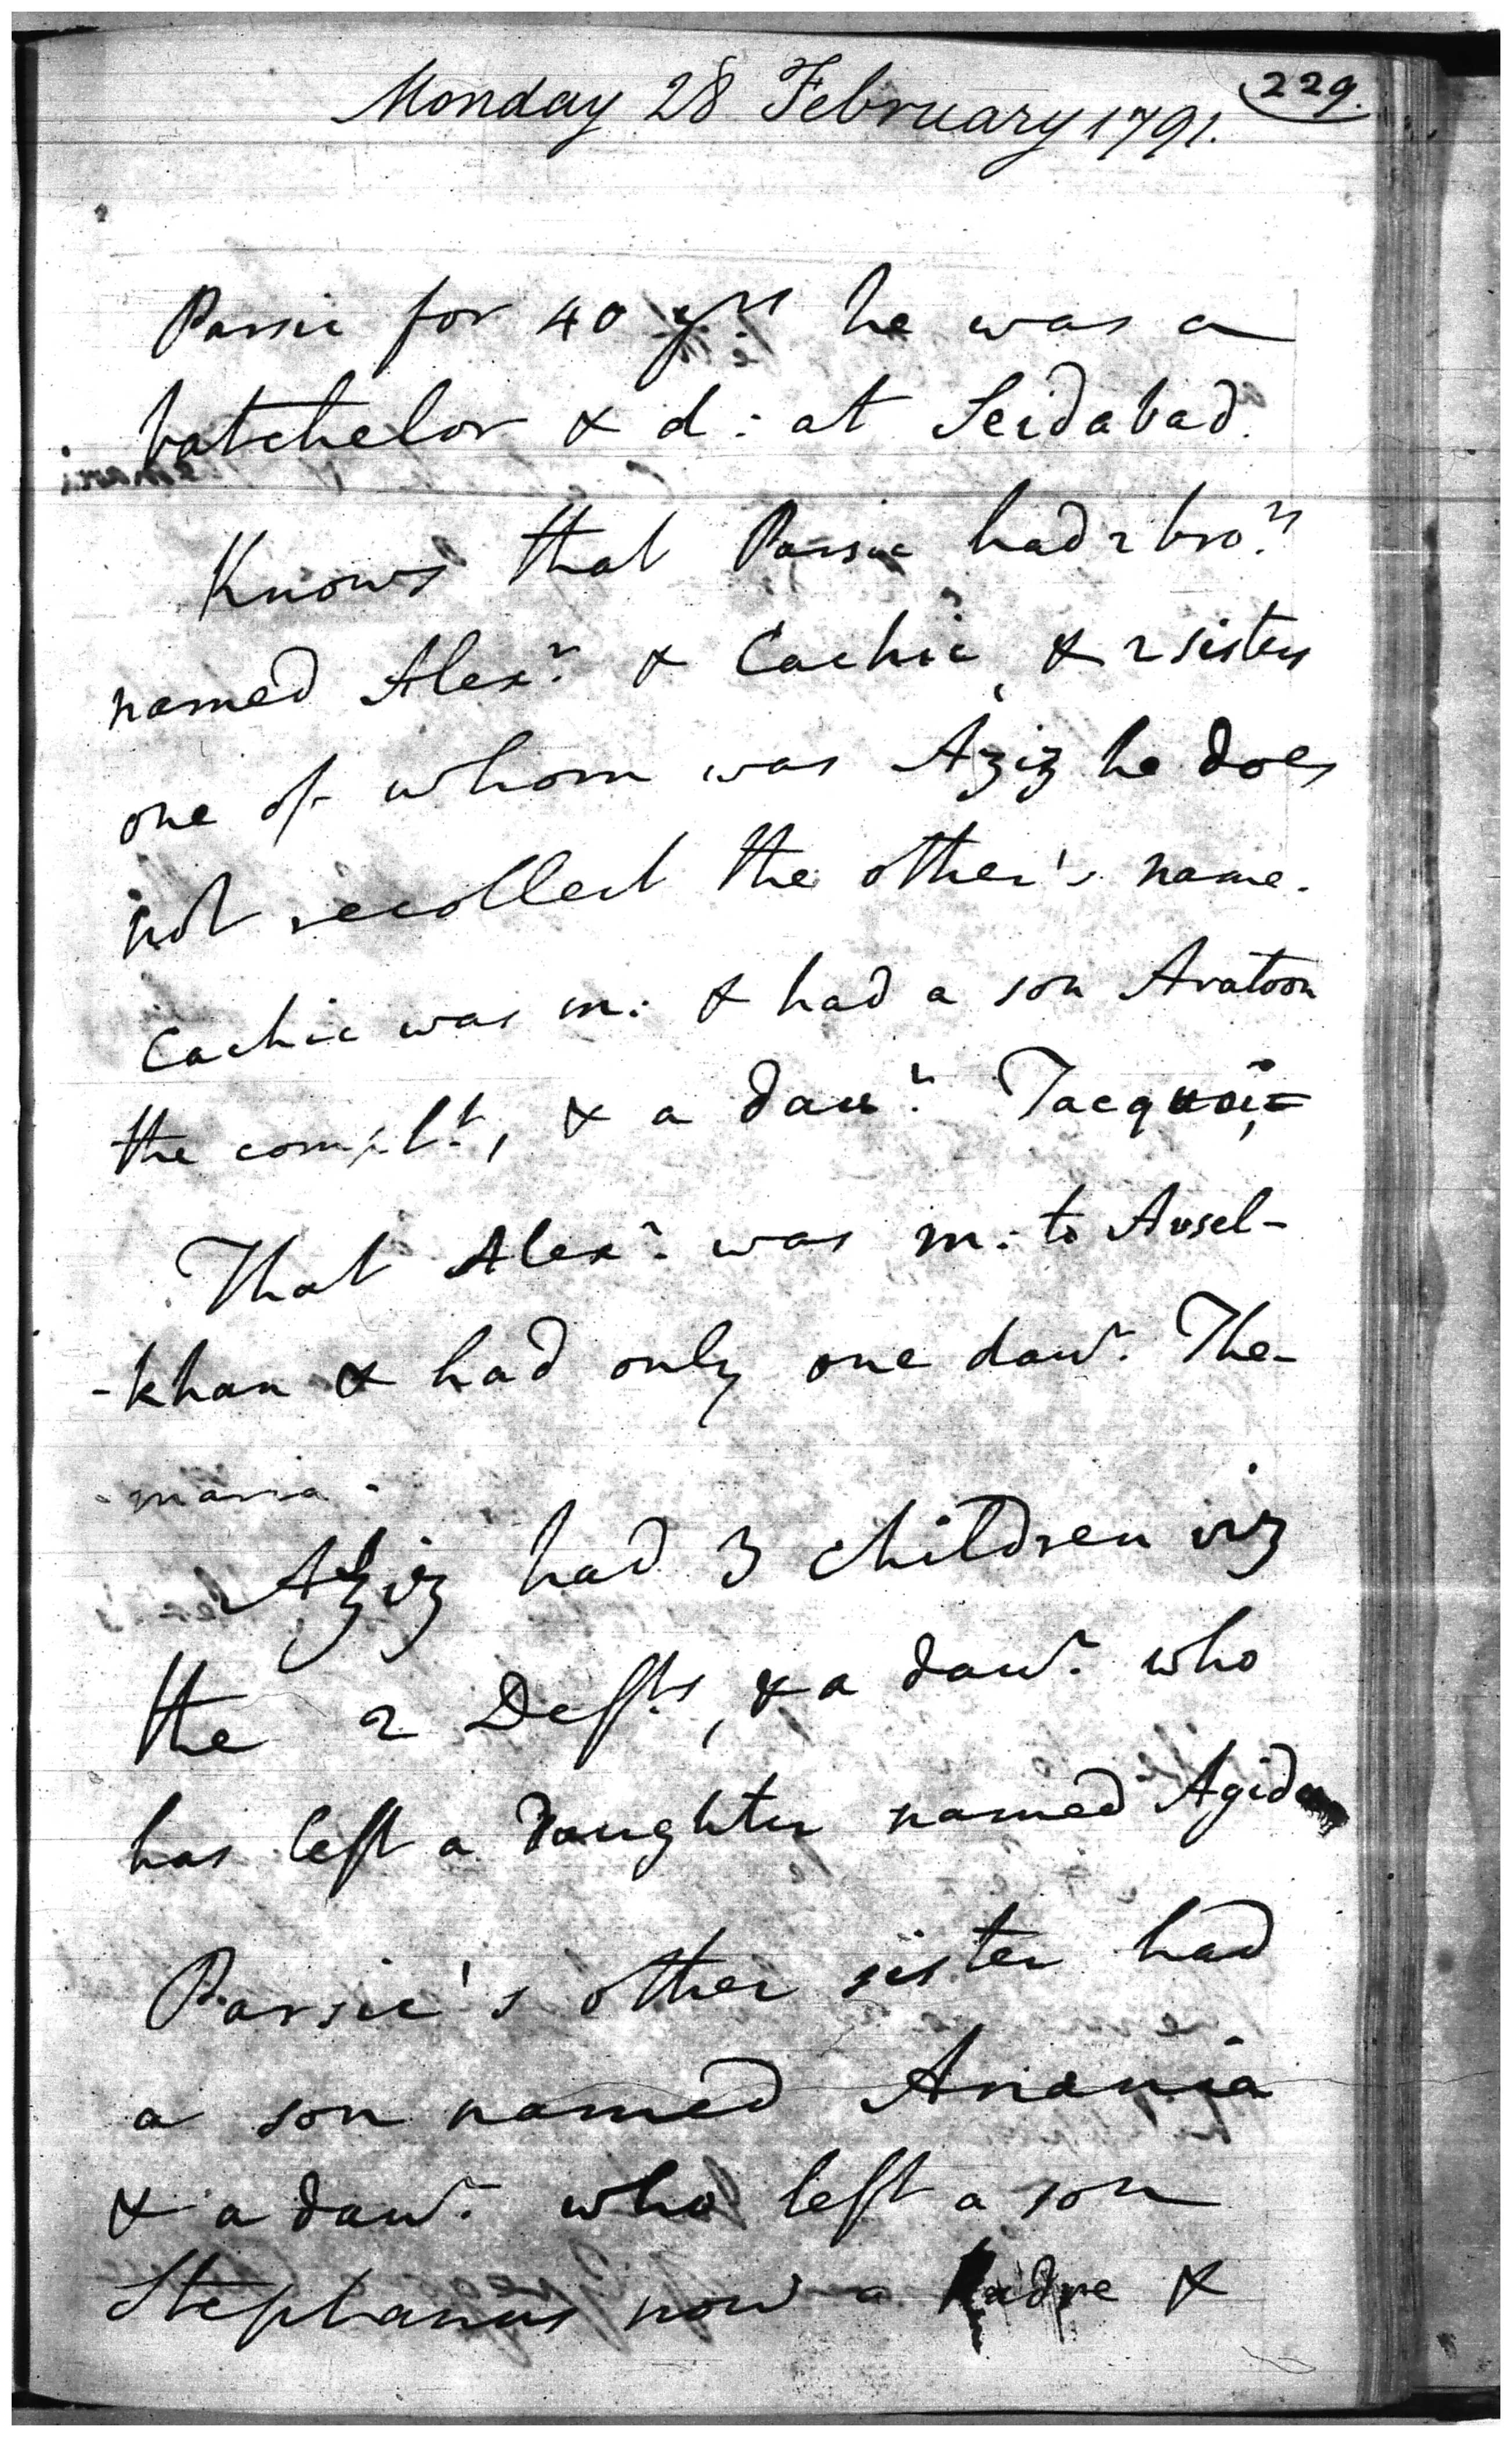 229.
Monday 28 February 1791.
Parsic for 40 yrs he was a
batchelor & d: at Seidabad.
Knows that Parsic had 2 bro.rs
named Alex.r & Cachic, & 2 sisters
one of whom was Aziz he does
not recollect the other's name.
Cachic was m: & had a son Aratoon
the compl.t, & a dau.r Tacquoi,
That Alex.r was m: to Ausel-
-khan & had only one daur. The-
-maria.
Aziz had 3 children viz
the 2 Def.ts, & a daur. who
has left a daughter named Agida
Parsic's other sister had
a son named Anania
& a daur. who left a son
Stephanus now a Padre &